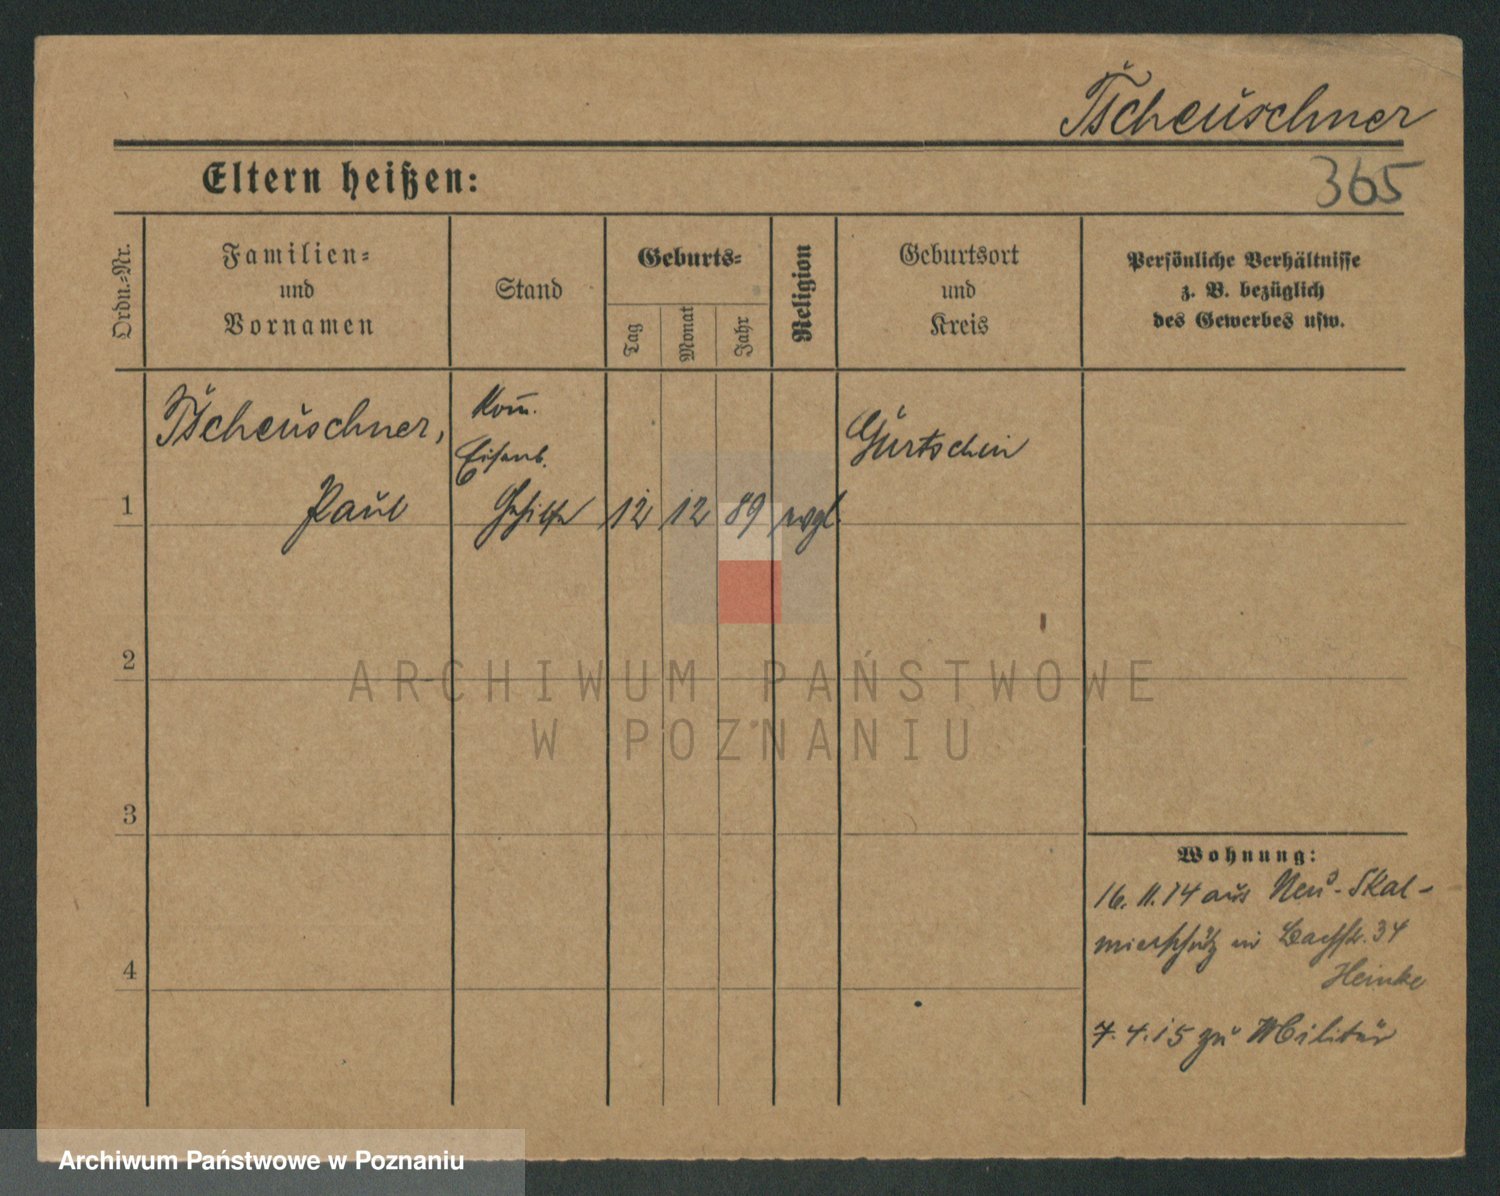 Tscheuschner
Eltern heißen:
365
Ordn.-Nr.
Familien-
und
Vornamen
Stand
Geburts-
Tag
Monat
Jahr
Religion
Geburtsort
und
Kreis
Persönliche Verhältnisse
z. B. bezüglich
des Gewerbes usw.
1
Tscheuschner,
Paul
Kom.
Eisenb.
Gehilfe
12
12
89
evgl.
Gurtschin
2
3
4
Wohnung:
16. 11. 14 aus Neu-Skal-
mierschütz in Bachstr. 34
Heinke
7. 4. 15 zu Militär
ARCHIWUM PAŃSTWOWE
W POZNANIU
Archiwum Państwowe w Poznaniu